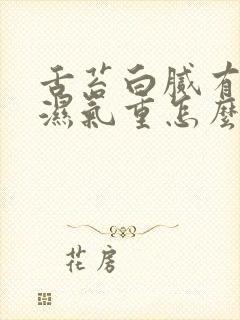 舌苔白膩有
濕氣重怎麼
花房